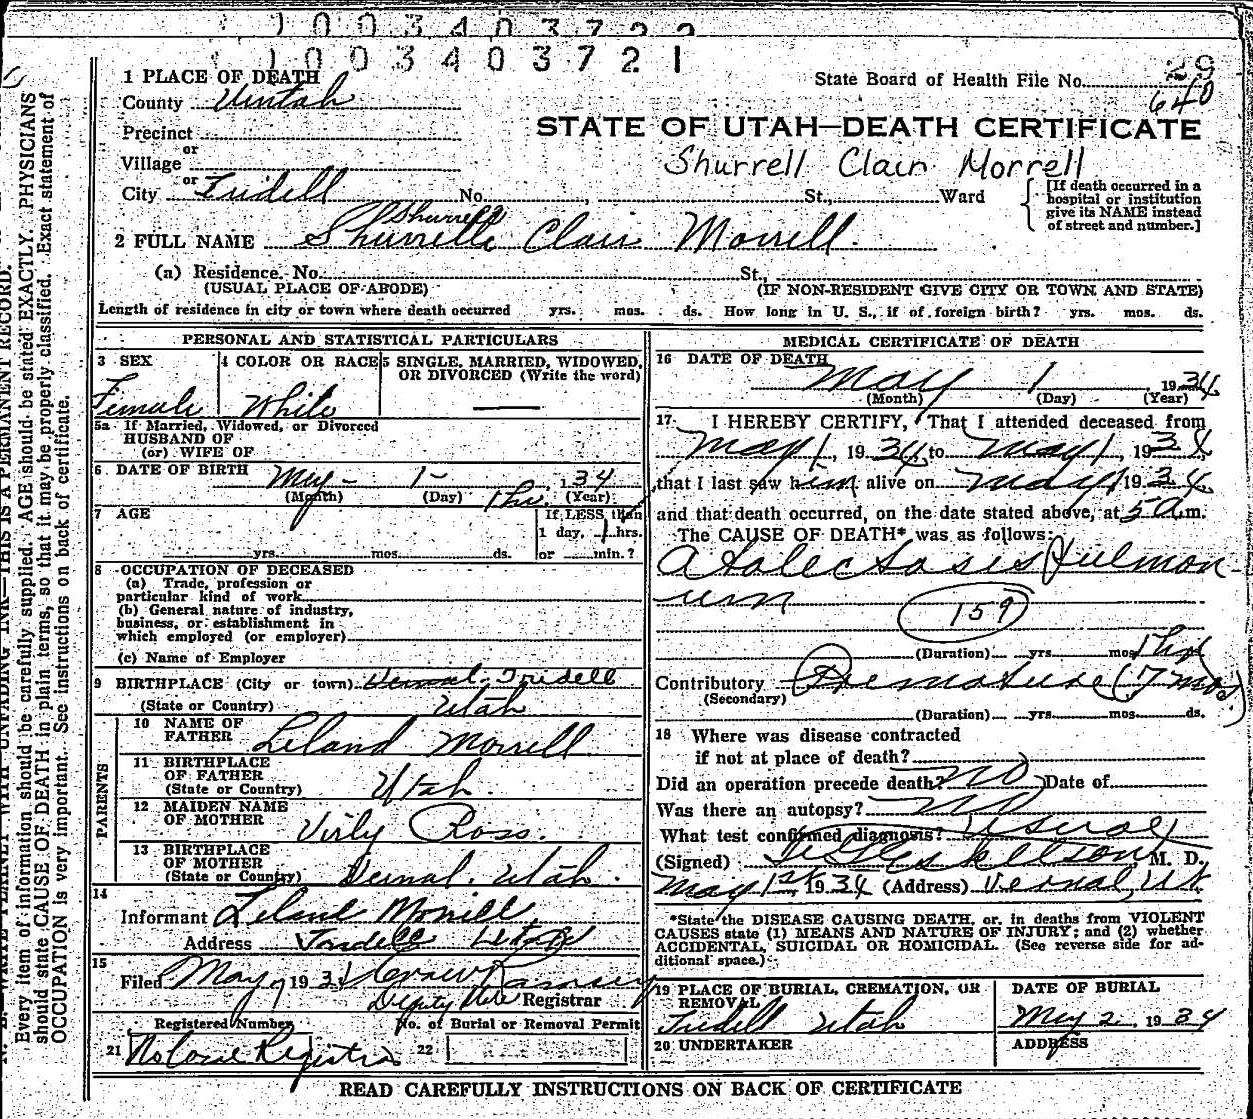 1 0 0 3 4 0 3 7 2 2
1 0 0 3 4 0 3 7 2 1
29
1 PLACE OF DEATH
State Board of Health File No.
640
County Uintah
STATE OF UTAH—DEATH CERTIFICATE
Precinct
or
Village
Shurrell Clair Morrell
or
City Tridell No. , St., Ward
[If death occurred in a
hospital or institution
give its NAME instead
of street and number.]
Shurrell
2 FULL NAME Shurrelle Clair Morrell.
(a) Residence. No. St.,
(USUAL PLACE OF ABODE) (IF NON-RESIDENT GIVE CITY OR TOWN AND STATE)
Length of residence in city or town where death occurred yrs. mos. ds. How long in U. S., if of foreign birth? yrs. mos. ds.
PERSONAL AND STATISTICAL PARTICULARS
3 SEX
Female
4 COLOR OR RACE
White
5 SINGLE, MARRIED, WIDOWED,
OR DIVORCED (Write the word)
5a If Married, Widowed, or Divorced
HUSBAND OF
(or) WIFE OF
6 DATE OF BIRTH May - 1 - 34
(Month) (Day) (Year)
1 hr
7 AGE
yrs. mos. ds.
If LESS than
1 day, 1 hrs.
or min.?
8 OCCUPATION OF DECEASED
(a) Trade, profession or
particular kind of work
(b) General nature of industry,
business, or establishment in
which employed (or employer)
(c) Name of Employer
9 BIRTHPLACE (City or town) Vernal, Tridell
(State or Country) Utah
PARENTS
10 NAME OF
FATHER Leland Morrell
11 BIRTHPLACE
OF FATHER
(State or Country) Utah.
12 MAIDEN NAME
OF MOTHER Virly Ross.
13 BIRTHPLACE
OF MOTHER
(State or Country) Vernal, Utah.
14
Informant Leland Morrell,
Address Tridell Utah
15
Filed May 7 193 Ramsey
Deputy Registrar
Registered Number
21 No Local Registrar
No. of Burial or Removal Permit
22
MEDICAL CERTIFICATE OF DEATH
16 DATE OF DEATH
May 1, 1934
(Month) (Day) (Year)
17 I HEREBY CERTIFY, That I attended deceased from
May 1, 1934, to May 1, 1934
that I last saw him alive on May 1 1934
and that death occurred, on the date stated above, at 5 a m.
The CAUSE OF DEATH* was as follows:
Atalectasis Pulmon-
um
159
(Duration) yrs. mos. 1 hr
Contributory Premature (7 mos.)
(Secondary)
(Duration) yrs. mos. ds.
18 Where was disease contracted
if not at place of death?
Did an operation precede death? no Date of
Was there an autopsy? no
What test confirmed diagnosis? usual
(Signed) M. D.
May 1st, 1934 (Address) Vernal, Ut.
*State the DISEASE CAUSING DEATH, or, in deaths from VIOLENT
CAUSES state (1) MEANS AND NATURE OF INJURY; and (2) whether
ACCIDENTAL, SUICIDAL OR HOMICIDAL. (See reverse side for ad-
ditional space.)
19 PLACE OF BURIAL, CREMATION, OR
REMOVAL
Tridell Utah
DATE OF BURIAL
May 2, 1934
20 UNDERTAKER
ADDRESS
READ CAREFULLY INSTRUCTIONS ON BACK OF CERTIFICATE
WRITE PLAINLY WITH UNFADING INK—THIS IS A PERMANENT RECORD.
Every item of information should be carefully supplied. AGE should be stated EXACTLY. PHYSICIANS
should state CAUSE OF DEATH in plain terms, so that it may be properly classified. Exact statement of
OCCUPATION is very important. See instructions on back of certificate.